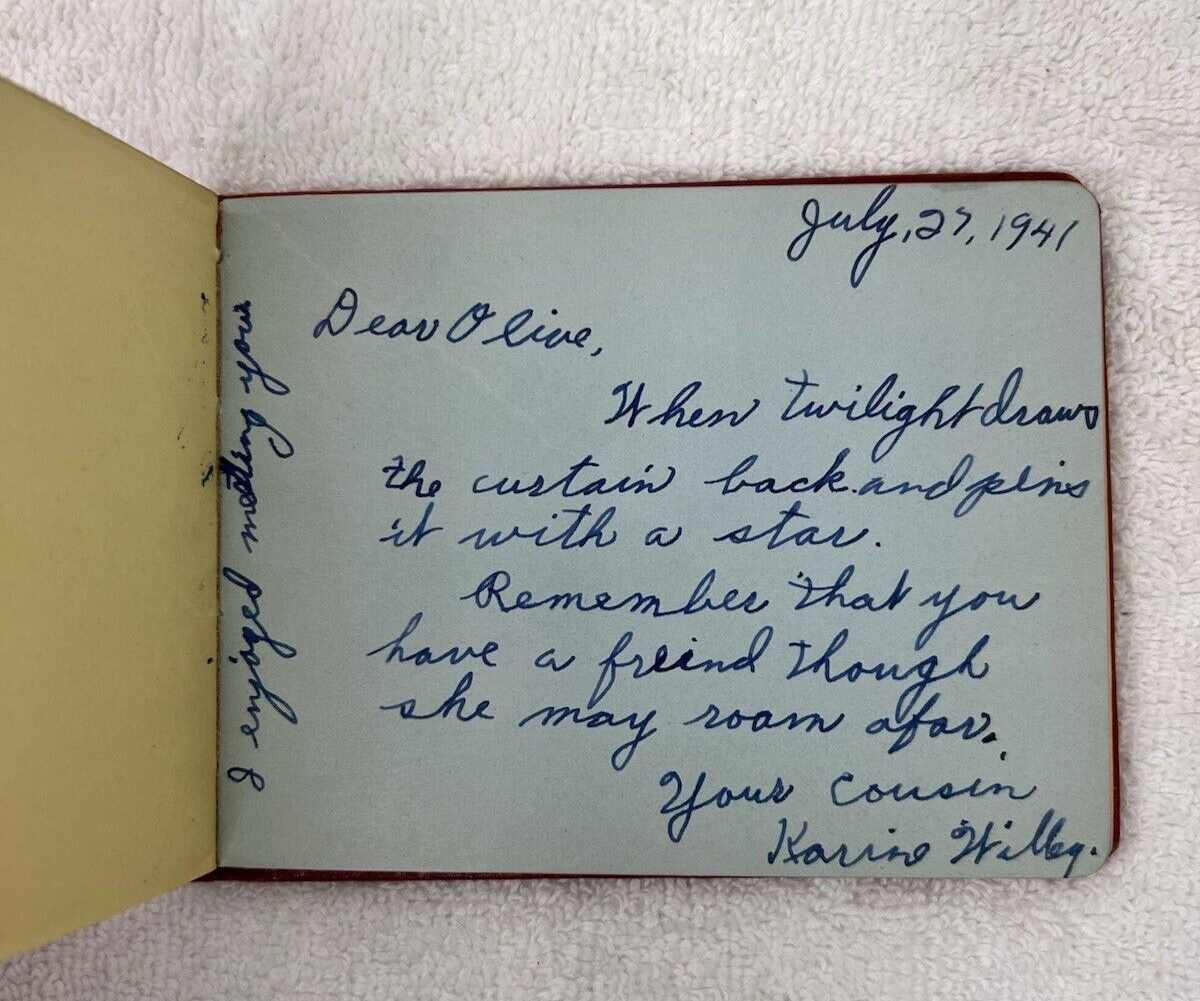 July, 27, 1941
Dear Olive,
When twilight draws
the curtain back and pins
it with a star.
Remember that you
have a freind though
she may roam afar.
Your Cousin
Karine Willey.
I enjoyed meeting you